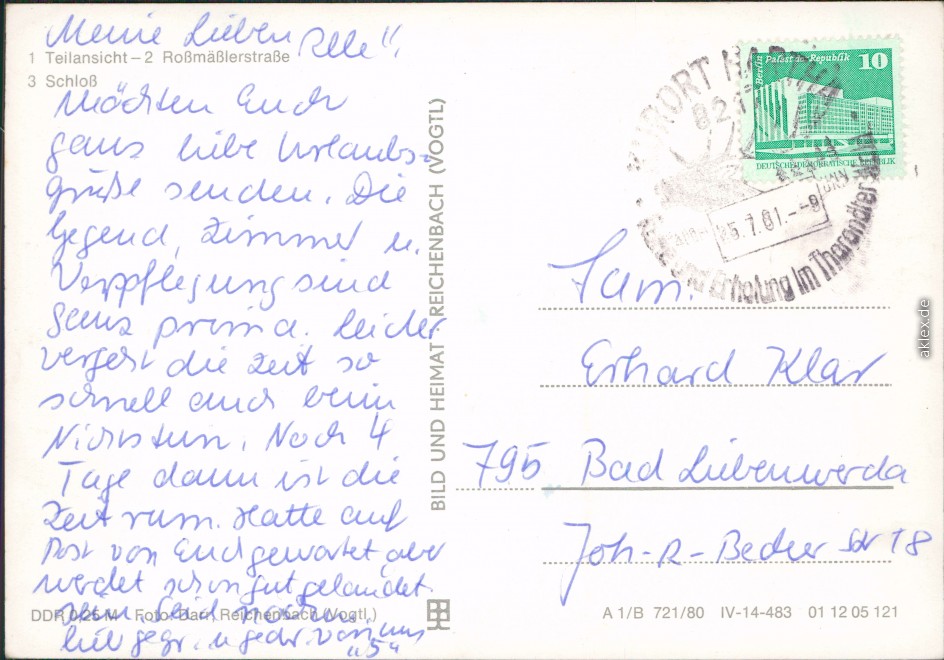 Meine Lieben Alle",
1 Teilansicht – 2 Roßmäßlerstraße
3 Schloß
Möchten Euch
ganz liebe Urlaubs-
grüße senden. Die
Gegend, Zimmer u.
Verpflegung sind
ganz prima. Leider
vergeht die Zeit so
schnell auch beim
Nichtstun. Noch 4
Tage dann ist die
Zeit rum. Hatte auf
Post von Euch gewartet aber
werdet schon gut gelandet
sein. Seid
lieb gegr. u gedr. von uns
"5"
DDR 0/25 M Foto: Darr, Reichenbach (Vogtl.)
BILD UND HEIMAT REICHENBACH (VOGTL)
Berlin Palast der Republik 10
DEUTSCHE DEMOKRATISCHE REPUBLIK
KURORT HARTHA
821
5.7.81.--9
und Erholung im Tharandter
Fam.
Erhard Klar
795 Bad Liebenwerda
Joh-R-Becher Str 18
A 1/B 721/80 IV-14-483 01 12 05 121
akleX.de